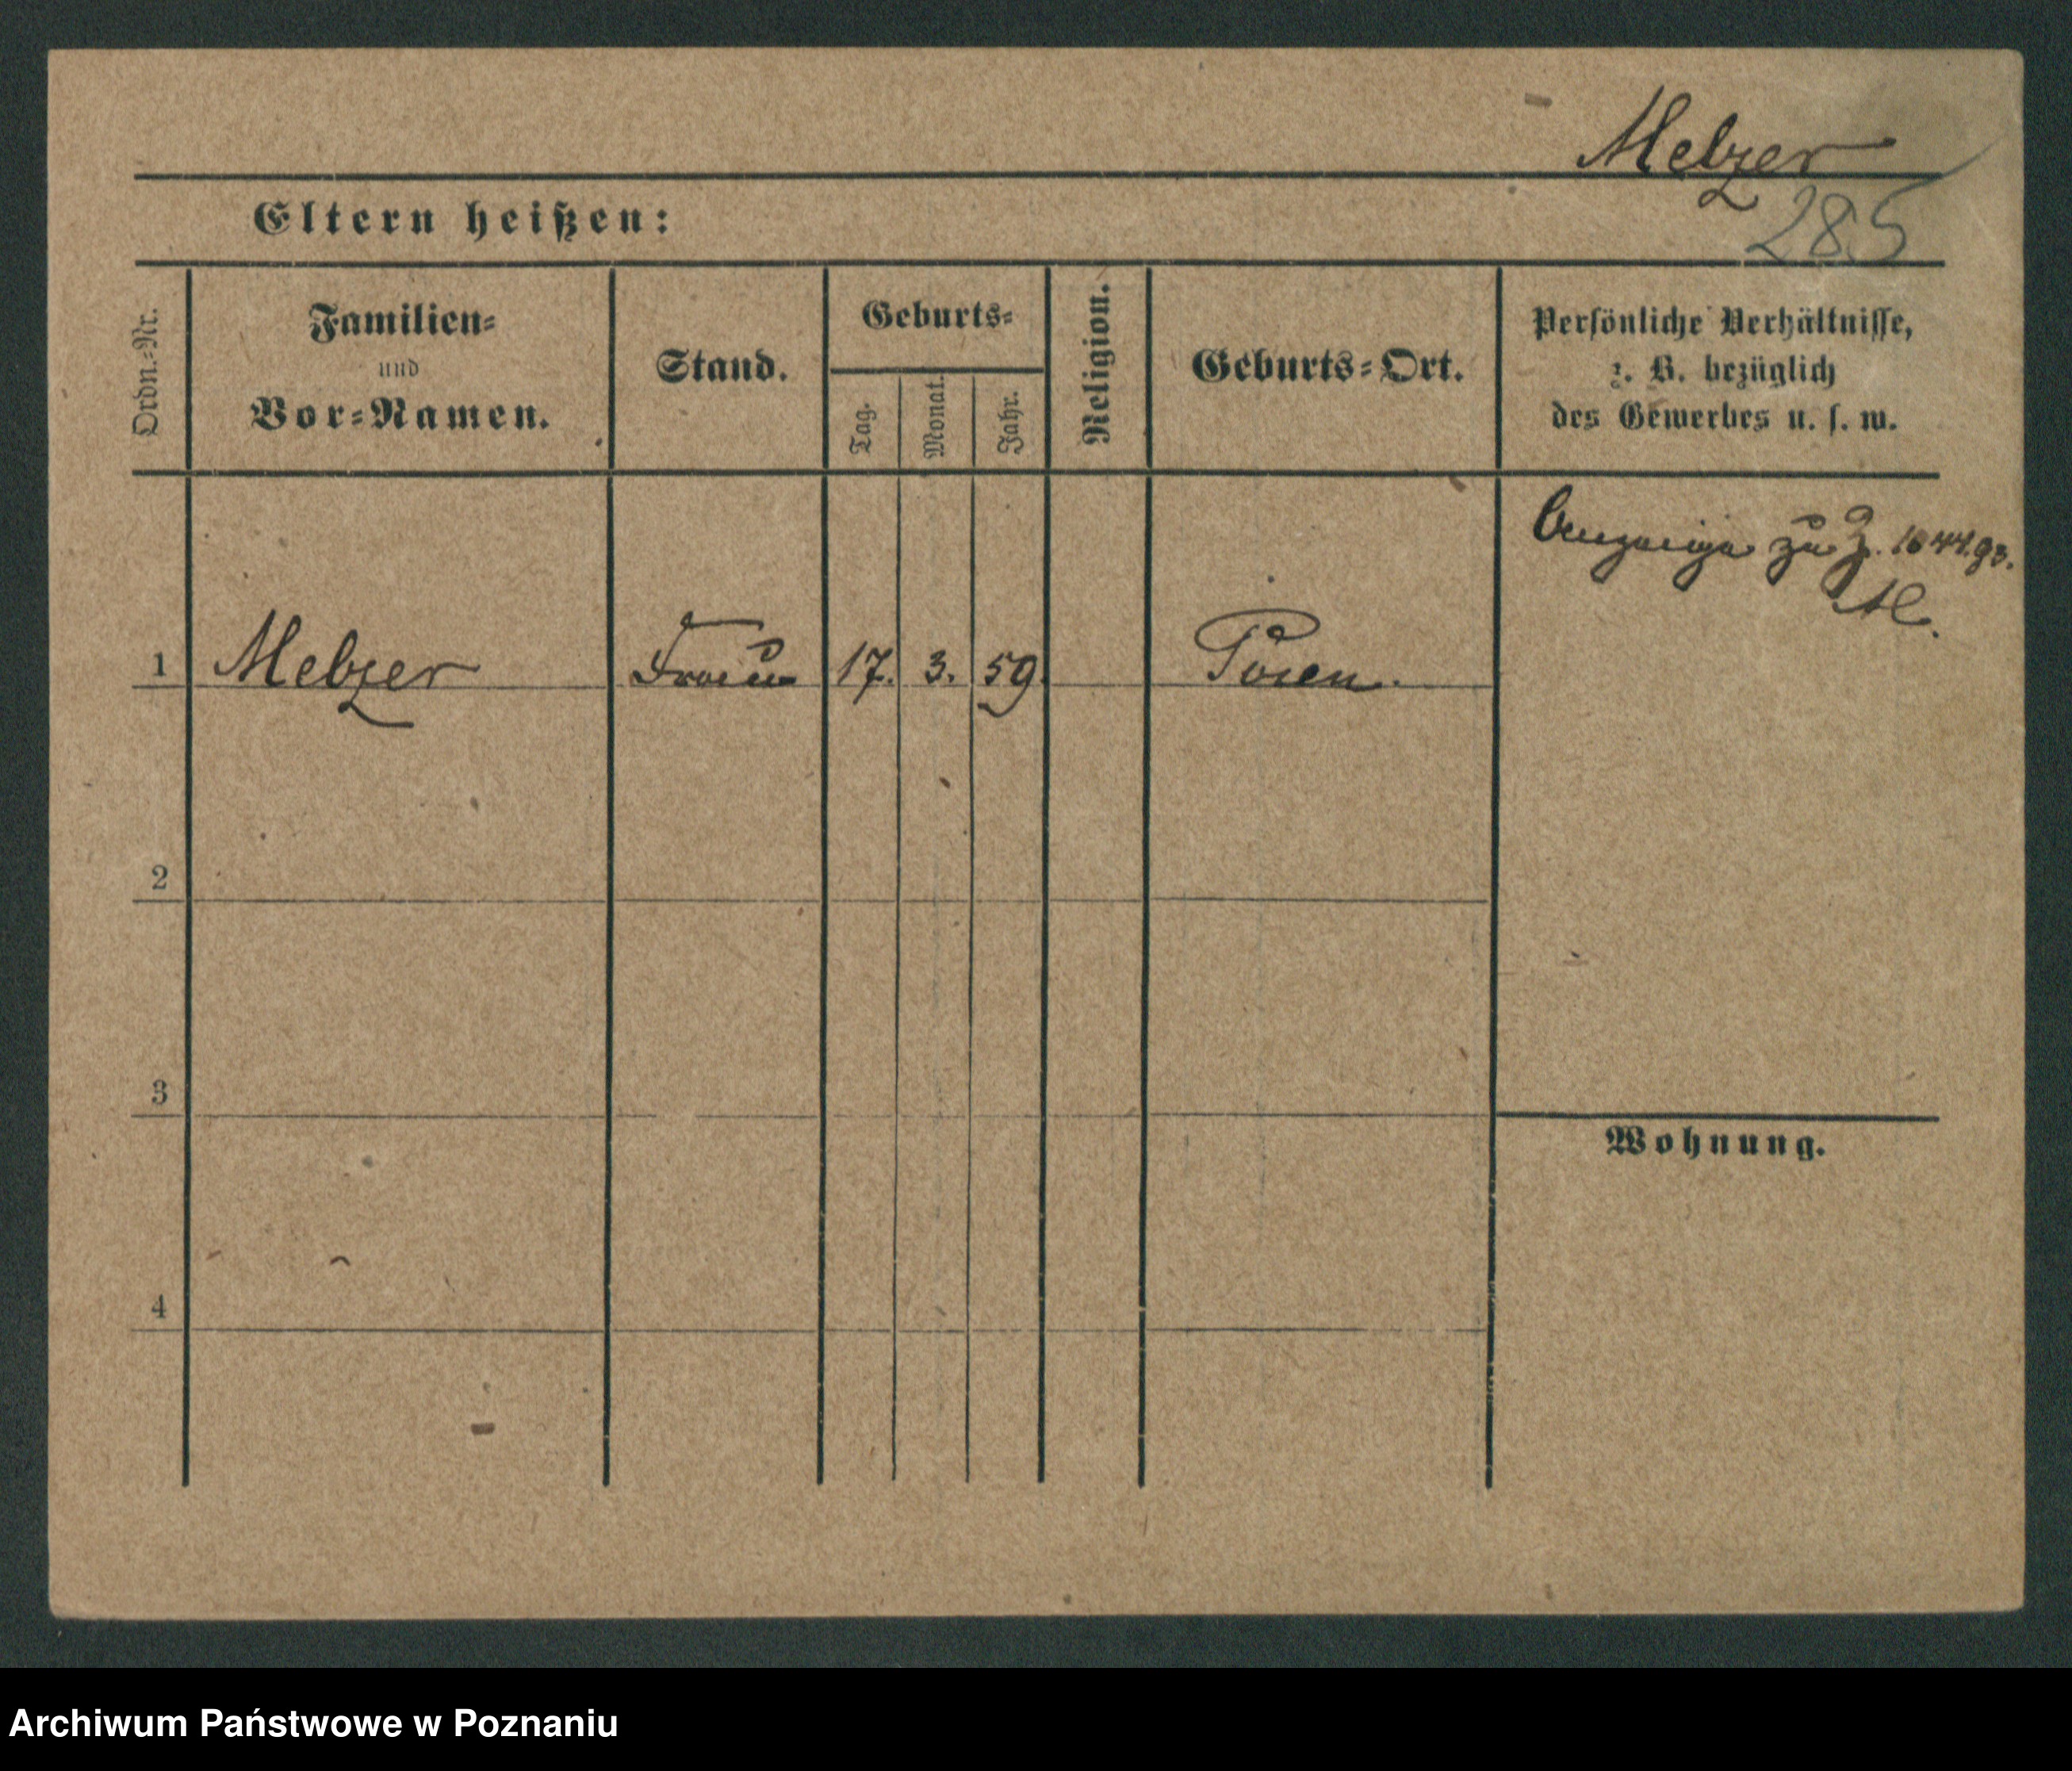 Melzer
Eltern heißen:
285
Ordn.-Nr.
Familien-
und
Vor-Namen.
Stand.
Geburts-
Tag.
Monat.
Jahr.
Religion.
Geburts-Ort.
Persönliche Verhältnisse,
z. B. bezüglich
des Gewerbes u. s. w.
Anzeige zu J. 1644.93.
M.
1 Melzer Frau 17. 3. 59. Posen.
2
3
Wohnung.
4
Archiwum Państwowe w Poznaniu